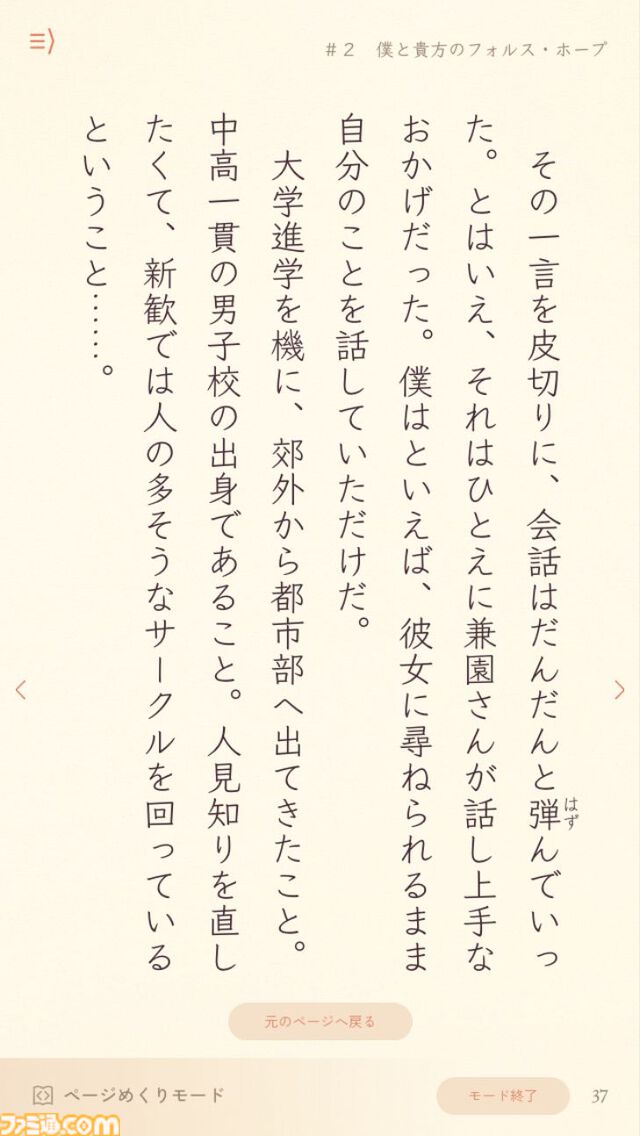 #2 僕と貴方のフォルス・ホープ
その一言を皮切りに、会話はだんだんと弾んでいっ
はず
た。とはいえ、それはひとえに兼園さんが話し上手な
おかげだった。僕はといえば、彼女に尋ねられるまま
自分のことを話していただけだ。
大学進学を機に、郊外から都市部へ出てきたこと。
中高一貫の男子校の出身であること。人見知りを直し
たくて、新歓では人の多そうなサークルを回っている
ということ……。
元のページへ戻る
ページめくりモード
モード終了
37
ファミ通.com